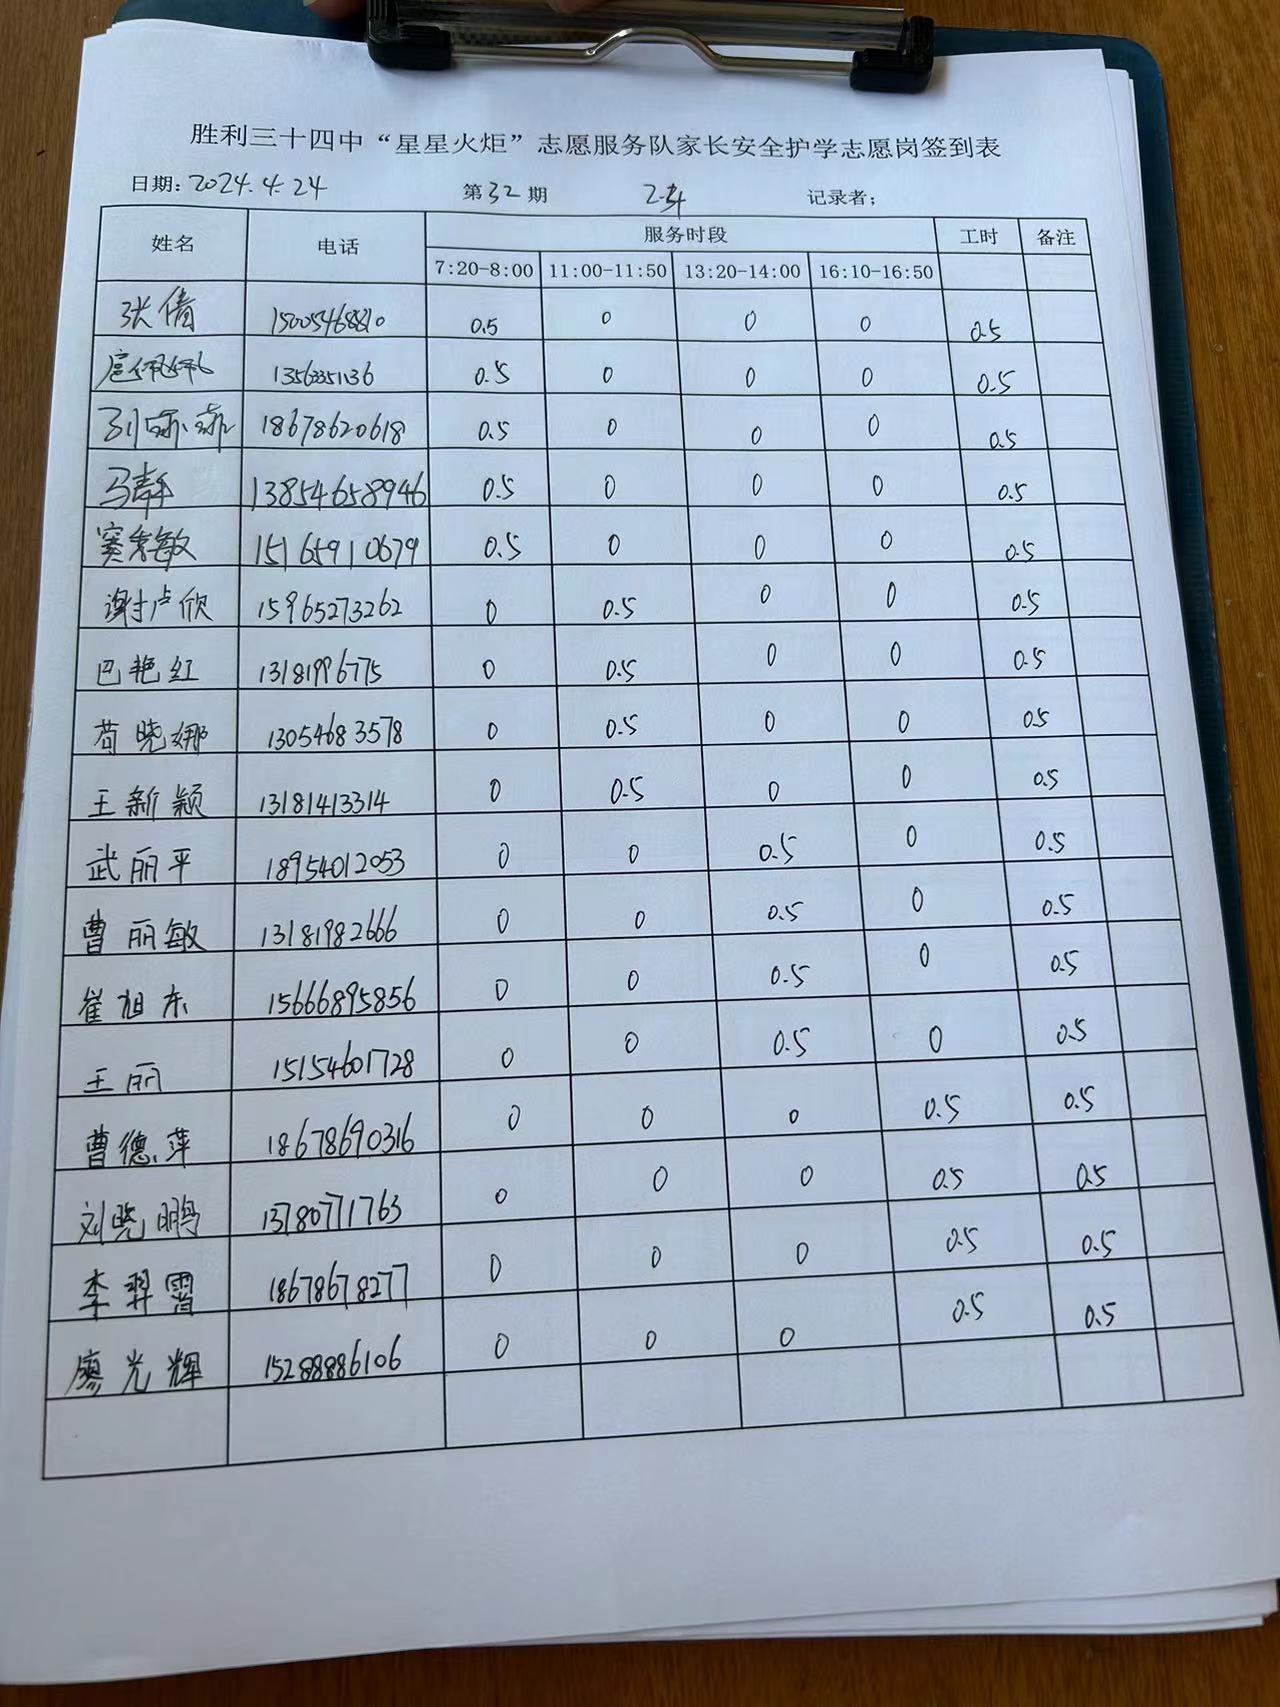 胜利三十四中“星星火炬”志愿服务队家长安全护学志愿岗签到表
日期: 2024.4.24 第32期 记录者;
姓名 电话 服务时段 工时 备注
7:20-8:00 11:00-11:50 13:20-14:00 16:10-16:50
张倩 15005468810 0.5 0 0 0 0.5
13563351136 0.5 0 0 0 0.5
18678620618 0.5 0 0 0 0.5
马静 13854658946 0.5 0 0 0 0.5
窦秀敏 15165910679 0.5 0 0 0 0.5
谢卢欣 15965273262 0 0.5 0 0 0.5
巴艳红 13181996775 0 0.5 0 0 0.5
苟晓娜 13054683578 0 0.5 0 0 0.5
王新颖 13181413314 0 0.5 0 0 0.5
武丽平 18954012053 0 0 0.5 0 0.5
曹丽敏 13181982666 0 0 0.5 0 0.5
崔旭东 15666895856 0 0 0.5 0 0.5
王丽 15154601728 0 0 0.5 0 0.5
曹德萍 18678690316 0 0 0 0.5 0.5
刘晓鹏 13780771763 0 0 0 0.5 0.5
李羿霄 18678678277 0 0 0 0.5 0.5
廖光辉 15288886106 0 0 0 0.5 0.5